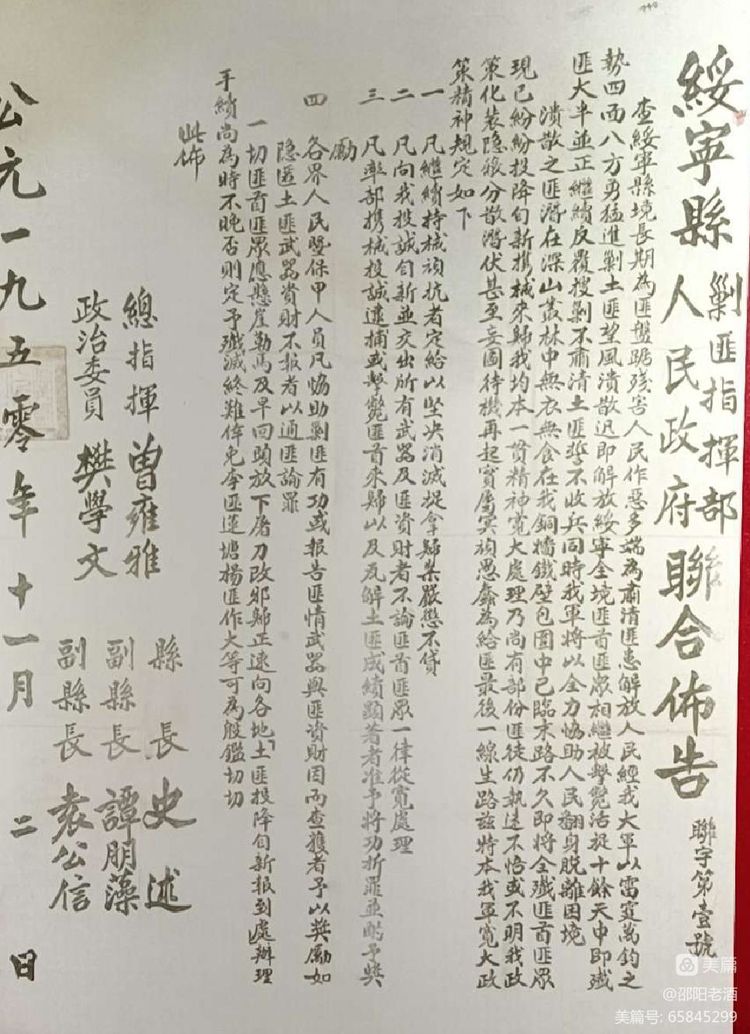 綏寧縣剿匪指揮部人民政府聯合佈告
聯字第壹號
查綏寧縣境長期為匪盤踞殘害人民作惡多端為肅清匪患解放人民經我大軍以雷霆萬鈞之
勢四面八方勇猛進剿土匪望風潰散迅即解放綏寧全境匪首匪眾相繼被擊斃活捉十餘天中即殲
匪大半並正繼續反覆搜剿不肅清土匪誓不收兵同時我軍將以全力協助人民翻身脫離困境
潰散之匪潛在深山叢林中無衣無食在我銅墻鐵壁包圍中已臨末路不久即將全殲匪首匪眾
現已紛紛投降自新携械來歸我均本一貫精神寬大處理乃尚有部份匪徒仍執迷不悟或不明我政
策化装隐藏分散潛伏甚至妄圖待機再起實屬冥頑愚蠢為給匪最後一線生路茲特本我軍寬大政
策精神規定如下
一 凡繼續持械頑抗者定給以坚决消滅捉拿歸案嚴懲不貸
二 凡向我投誠自新並交出所有武器及匪資財者不論匪首匪眾一律從寬處理
三 凡率部携械投誠逮捕或擊斃匪首來歸以及瓦解土匪成績顯著者准予將功折罪並酌予獎
勵
四 各界人民暨保甲人員凡協助剿匪有功或報告匪情武器與匪資財因而查獲者予以獎勵如
隐匿土匪武器資財不报者以通匪論罪
一切匪首匪眾應懸崖勒馬及早回頭放下屠刀改邪歸正速向各地土匪投降自新报到處辦理
手續尚為時不晚否則定予殲滅終難倖免李匪蓮塘楊匪作大等可為殷鑑切切
此佈
總指揮 曾雍雅
政治委員 樊學文
縣長 史述
副縣長 譚朋藻
副縣長 袁公信
公元一九五零年十一月二日
美篇
@邵阳老酒
美篇号: 65845299